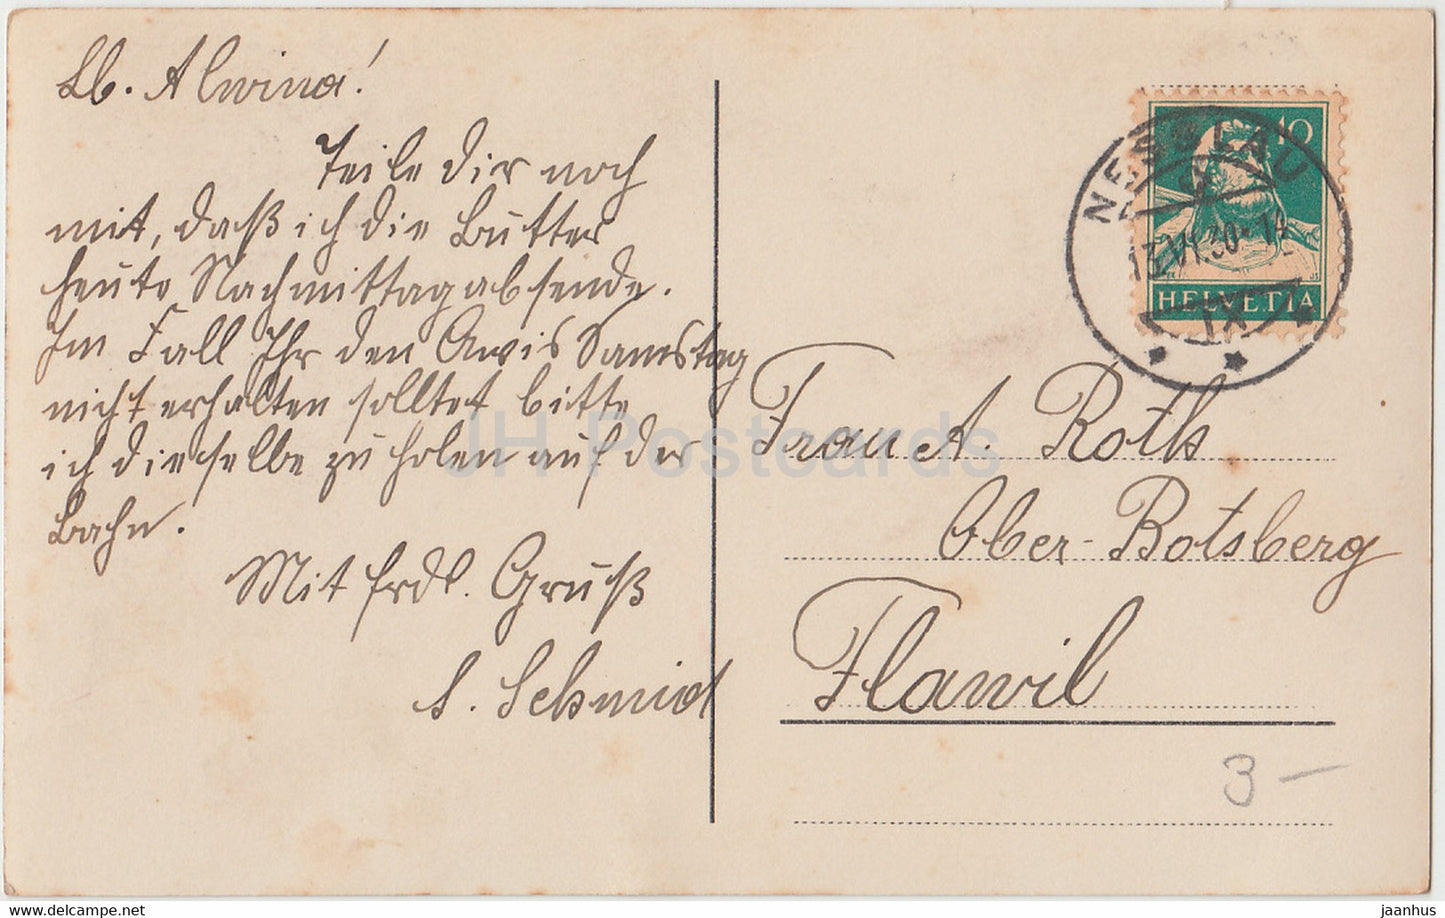 Lb. Alwina!
Teile dir noch
mit, daß ich die Butter
heute Nachmittag absende.
Im Fall Ihr den Avis Samstag
nicht erhalten solltet bitte
ich dieselbe zu holen auf der
Bahn.
Mit frdl. Gruß
S. Schmid
NESSLAU
13.VI.30-14
IX
10
HELVETIA
Frau A. Roth
Ober-Botsberg
Flawil
3 —
JH Postcards
www.delcampe.net
jaanhus